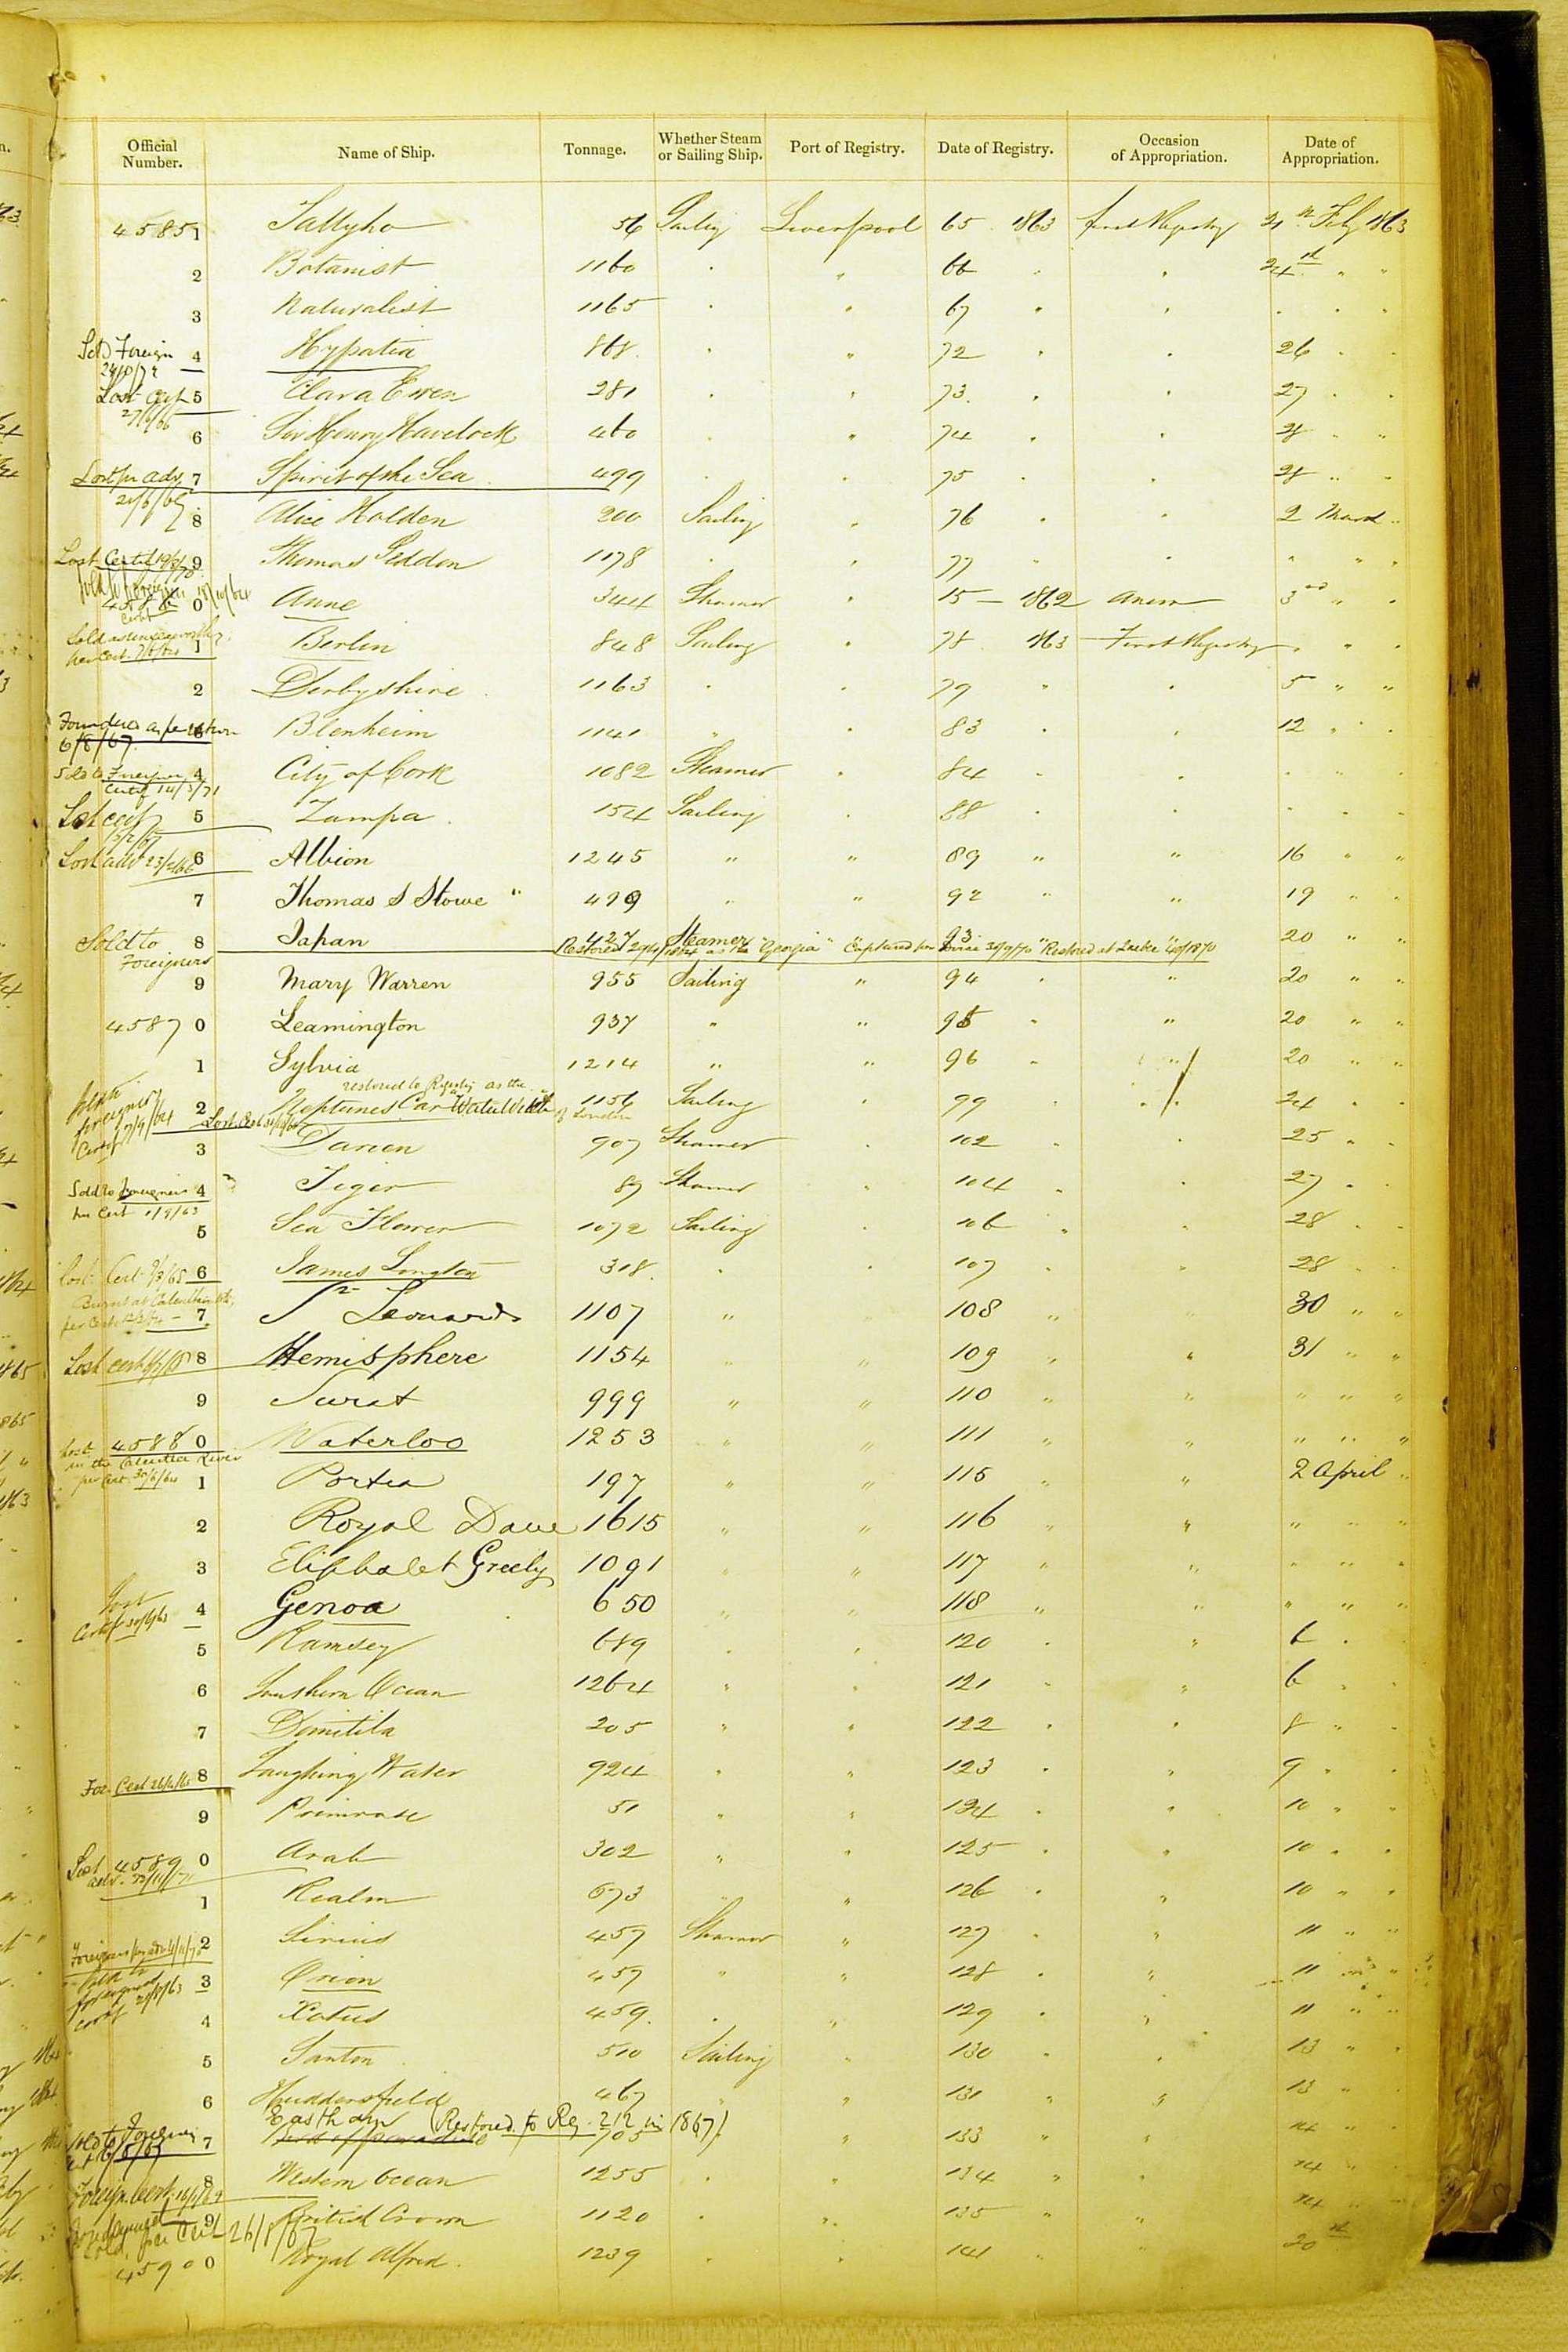 Official Number. Name of Ship. Tonnage. Whether Steam or Sailing Ship. Port of Registry. Date of Registry. Occasion of Appropriation. Date of Appropriation.
45851 Tallyho 56 Sailing Liverpool 65 1863 first Registry 21st Feby 1863
2 Botanist 1160 " " 66 " " 24th " "
3 Naturalist 1165 " " 67 " " " " "
Sold Foreign 4 Hypatia 868 " " 72 " " 26 " "
Lost Cert 5 Clara Ewen 281 " " 73 " " 27 " "
27/6/66
6 Sir Henry Havelock 460 " " 74 " " 28 " "
Lost pr adv. 7 Spirit of the Sea 499 " " 75 " " 28 " "
8 Alice Holden 200 Sailing " 76 " " 2 March "
Lost Cert 9 Thomas Seddon 1178 " " 77 " " " " "
4586 0 Anne 344 Steamer " 15 - 1862 Anew 3rd " "
1 Berlin 848 Sailing " 78 1863 First Registry " " "
2 Derbyshire 1163 " " 79 " " 5 " "
6/8/67 Blenheim 1141 " " 83 " " 12 " "
Sold to Foreigners 4 City of Cork 1082 Steamer " 84 " " " " "
Certif 14/3/71
Lost certf 5 Zampa 154 Sailing " 88 " " " " "
Lost adv 23/2/66 6 Albion 1245 " " 89 " " 16 " "
7 Thomas S Stowe " 499 " " 92 " " 19 " "
Sold to 8 Japan 427 Steamer 93 20 " "
Foreigners Restored as the "Georgia" "Captured " "Restored at Quebec
9 Mary Warren 955 Sailing " 94 " " 20 " "
4587 0 Leamington 937 " " 95 " " 20 " "
1 Sylvia 1214 " " 96 " " 20 " "
restored to Registry as the
2 Neptunes Car Water Witch of London 1156 Sailing " 99 " " 24 " "
3 Darien 907 Steamer " 102 " " 25 " "
Sold to foreigners 4 Tiger 87 Steamer " 104 " " 27 " "
per Cert 1/9/63
5 Sea Flower 1072 Sailing " 106 " " 28 " "
Lost Cert 9/3/65 6 James Longton 318 " " 107 " " 28 " "
Burnt at Calcutta
per Cert 7 St Leonards 1107 " " 108 " " 30 " "
Lost cert 8 Hemisphere 1154 " " 109 " " 31 " "
9 Surat 999 " " 110 " " " " "
Lost 4588 0 Waterloo 1253 " " 111 " " " " "
in the Calcutta River
per Cert 30/6/64 1 Portia 197 " " 115 " " 2 April "
2 Royal Dane 1615 " " 116 " " " " "
3 Eliphalet Greely 1091 " " 117 " " " " "
Lost
Certif 30/6/63 4 Genoa 650 " " 118 " " " " "
5 Ramsey 689 " " 120 " " 6 "
6 Southern Ocean 1264 " " 121 " " 6 " "
7 Domitila 205 " " 122 " " 8 " "
For. Cert 8 Laughing Water 924 " " 123 " " 9 " "
9 Primrose 51 " " 124 " " 10 " "
Lost 4589 0 Arab 302 " " 125 " " 10 " "
1 Realm 673 " " 126 " " 10 " "
2 Sirius 457 Steamer " 127 " " 11 " "
Sold to
foreigners 3 Orion 457 " " 128 " " 11 " "
4 Lotus 459 " " 129 " " 11 " "
5 Santon 510 Sailing " 130 " " 13 " "
6 Huddersfield 467 " " 131 " " 13 " "
Eastham (Restored to Reg. 212 in 1867)
Sold to Foreigners 7 Bird of Paradise 705 " 133 " " 14 " "
8 Western Ocean 1255 " " 134 " " 14 " "
Foreign Cert.
9 British Crown 1120 " " 135 " " 14 " "
Sold, per Cert 26/8/67
4590 0 Royal Alfred 1239 " " 141 " " 20th